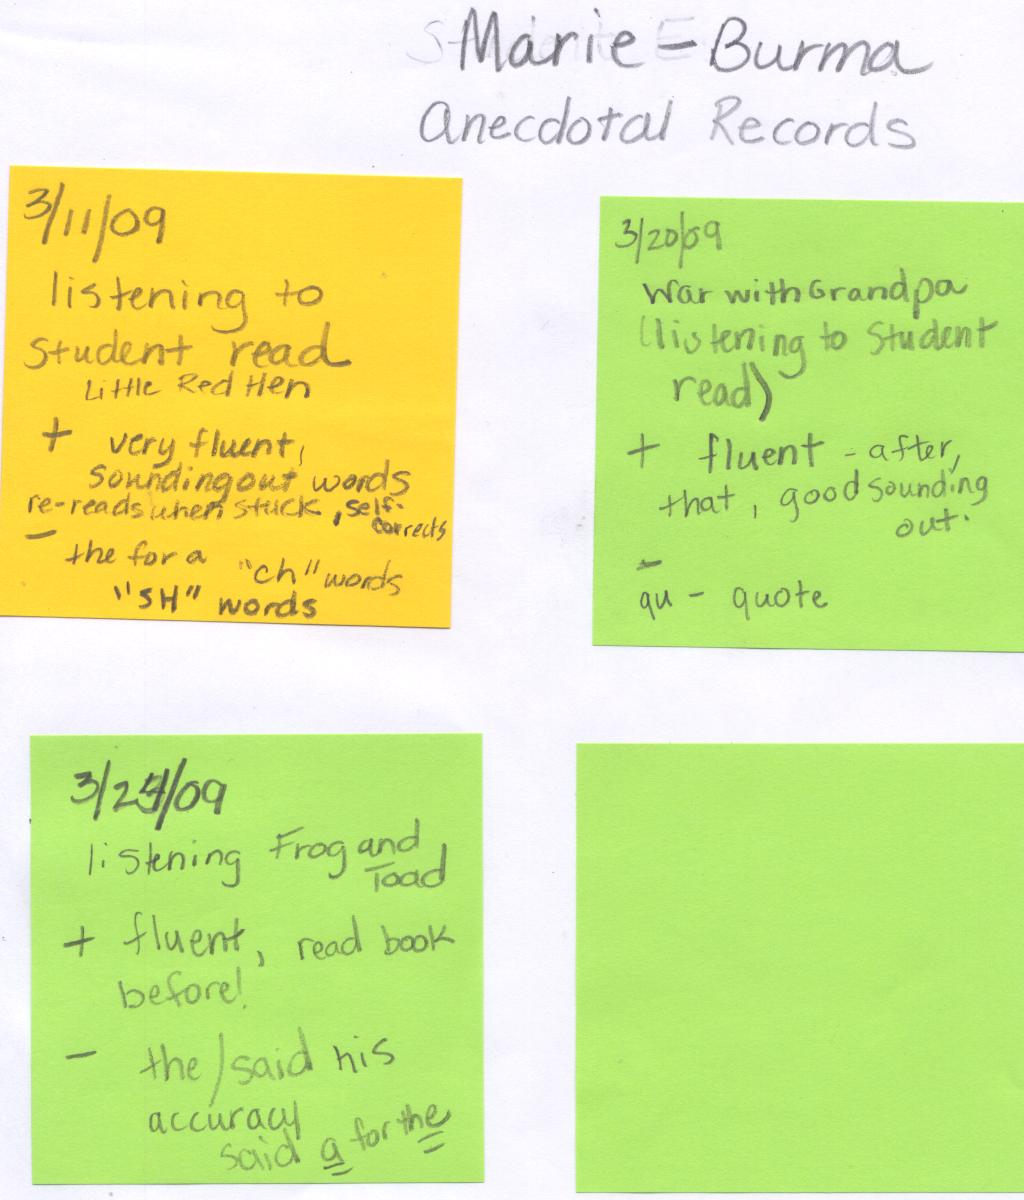 Marie - Burma
Anecdotal Records
3/11/09
listening to
student read
Little Red Hen
+ very fluent,
sounding out words
re-reads when stuck, self-
corrects
-
the for a "ch" words
"SH" words
3/20/09
War with Grandpa
(listening to student
read)
+ fluent - after,
that, good sounding
out.
-
qu - quote
3/25/09
listening Frog and
Toad
+ fluent, read book
before!
- the/said his
accuracy
said a for the